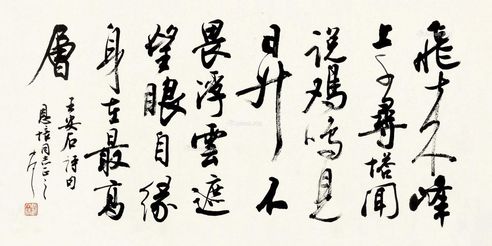 飛來峰
上千尋塔聞
說鷄鳴見
日升不
畏浮雲遮
望眼自緣
身在最高
層
王安石詩
恩培同志正之